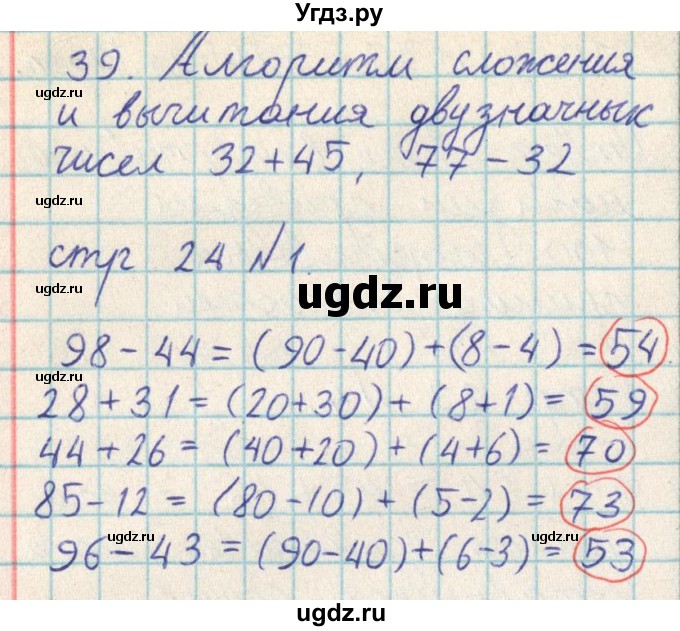 Угдз.ру
39. Алгоритм сложения
ugdz.ru ugdz.ru
и вычитания двузначных
чисел 32+45, 77-32
ugdz.ru
стр 24 №1.
ugdz.ru
98-44=(90-40)+(8-4)=54
ugdz.ru
28+31=(20+30)+(8+1)=59
44+26=(40+20)+(4+6)=70
85-12=(80-10)+(5-2)=73
ugdz.ru ugdz.ru
96-43=(90-40)+(6-3)=53
ugdz.ru